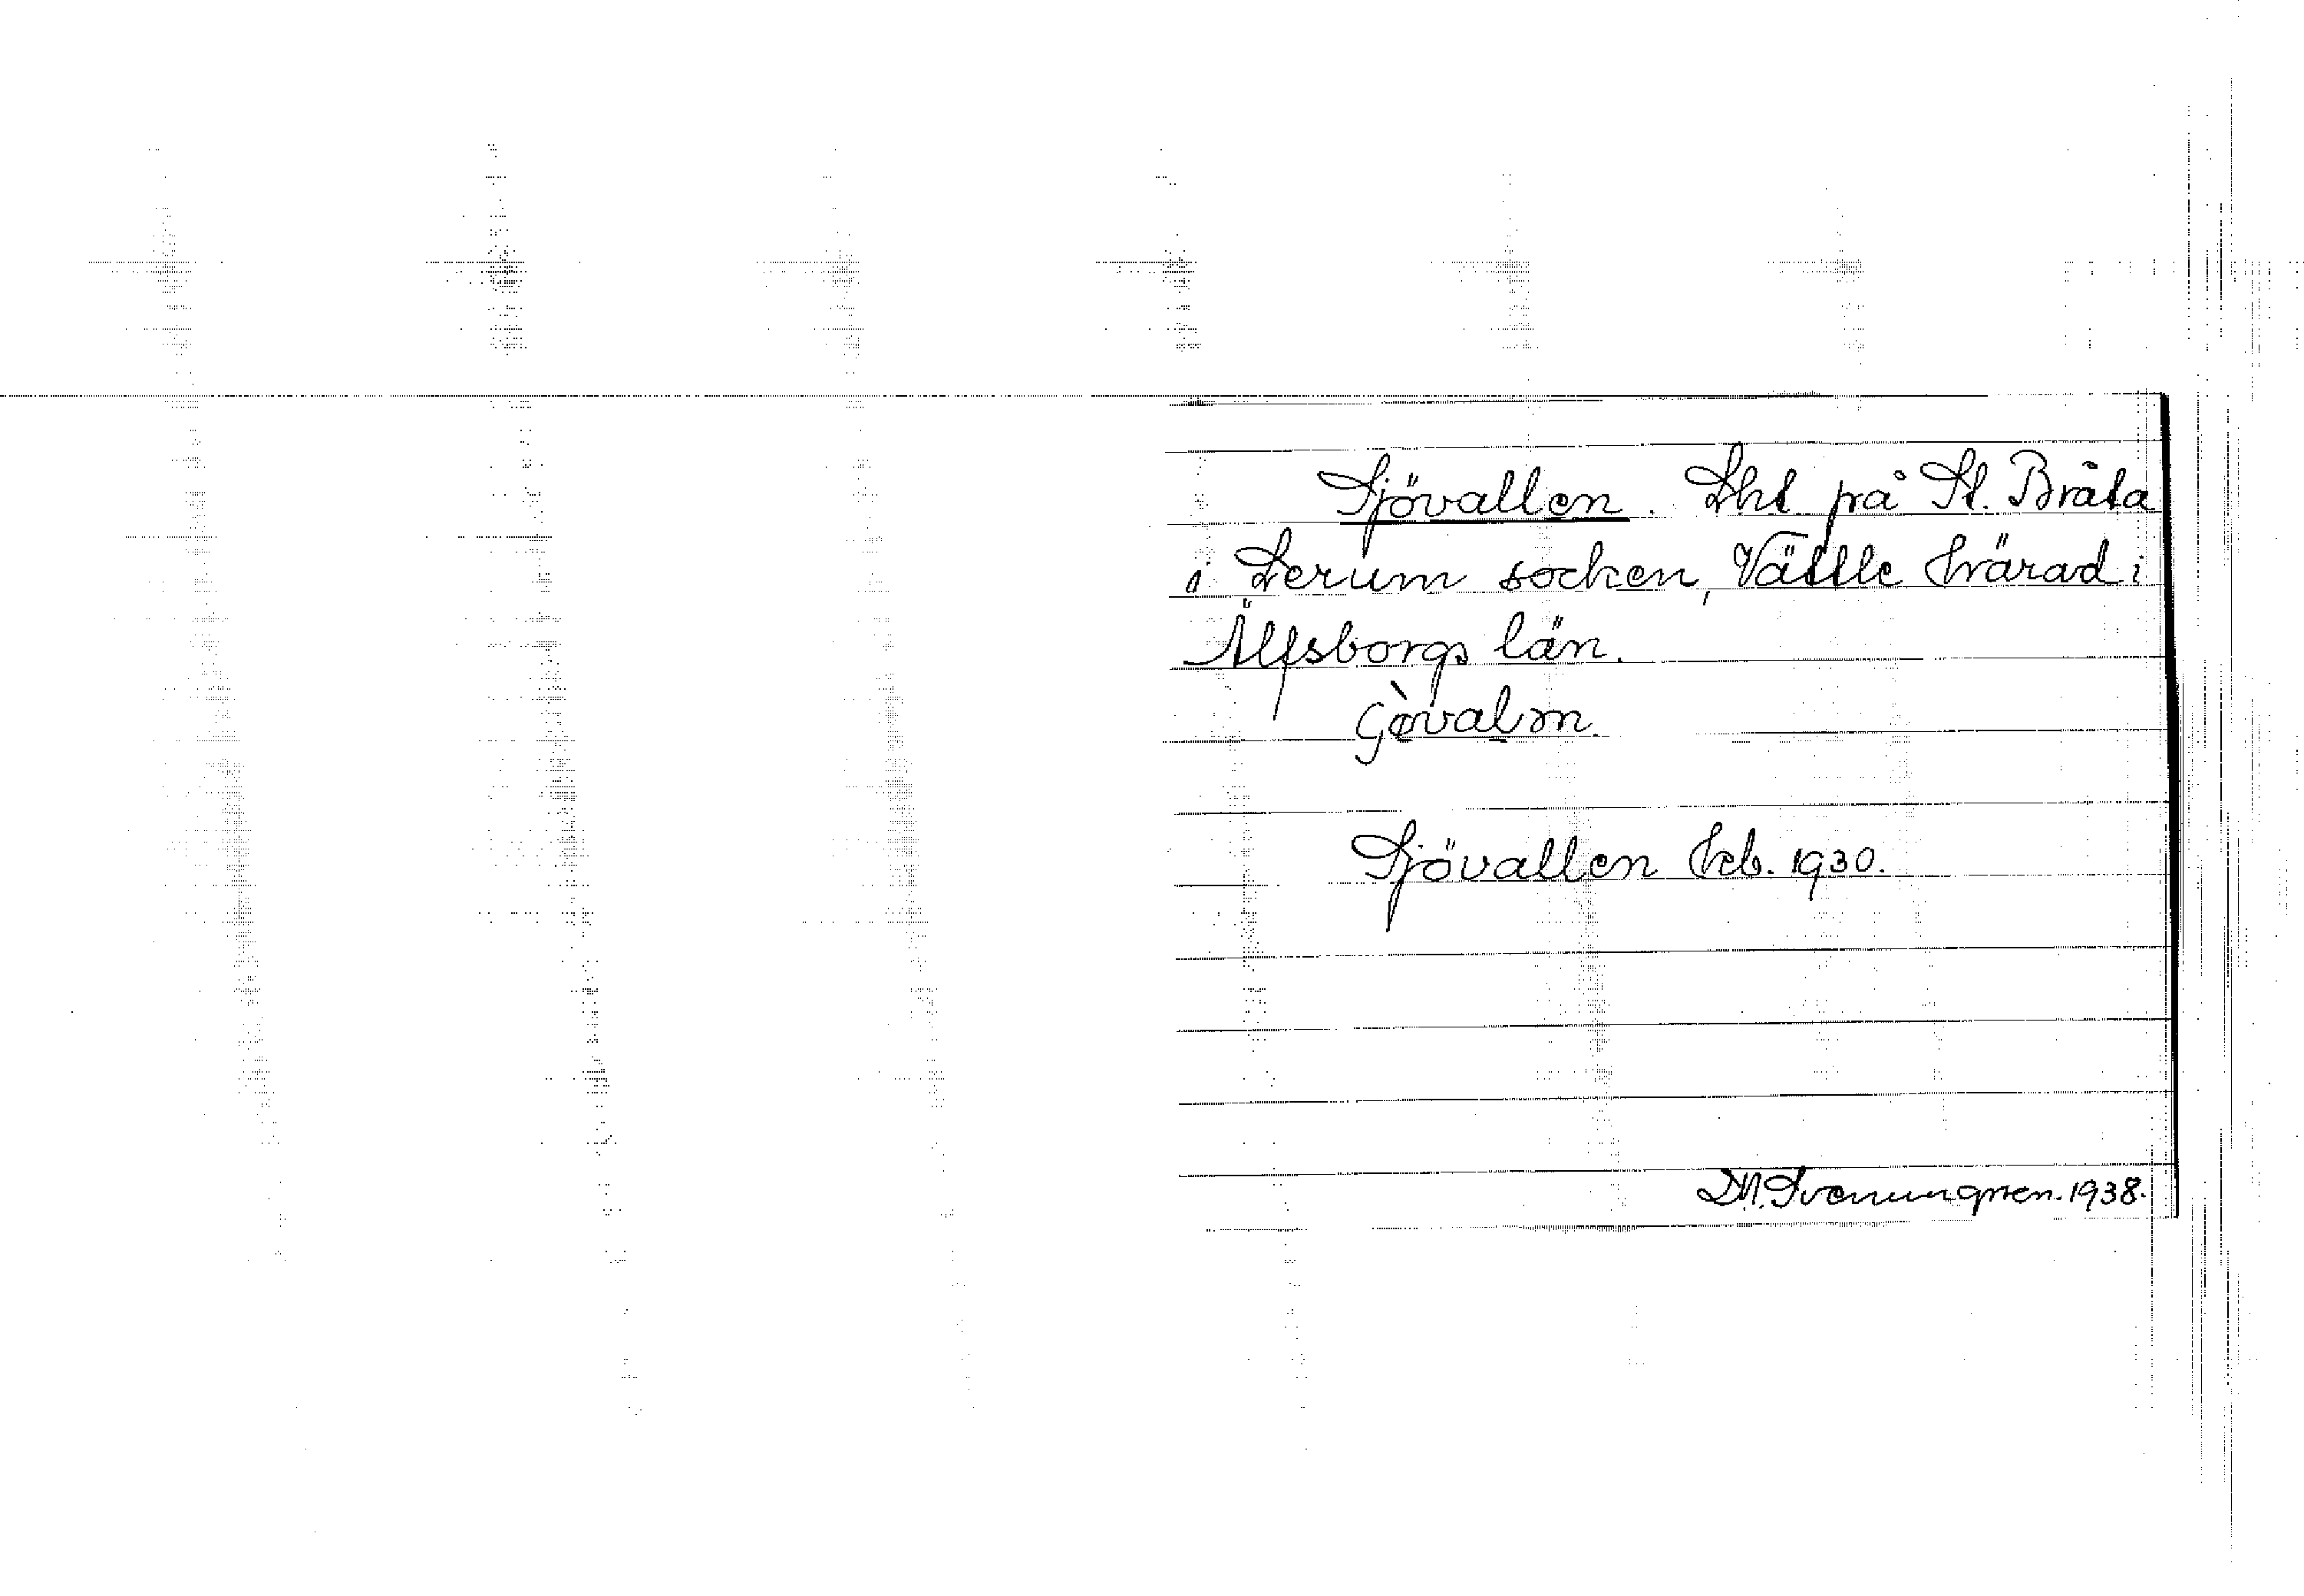 Sjövallen. Lht på St. Bråta
i Lerum socken, Vättle härad i
Älfsborgs län.
Sjövallen hrb. 1930.
D.N. Svenungsen. 1938.